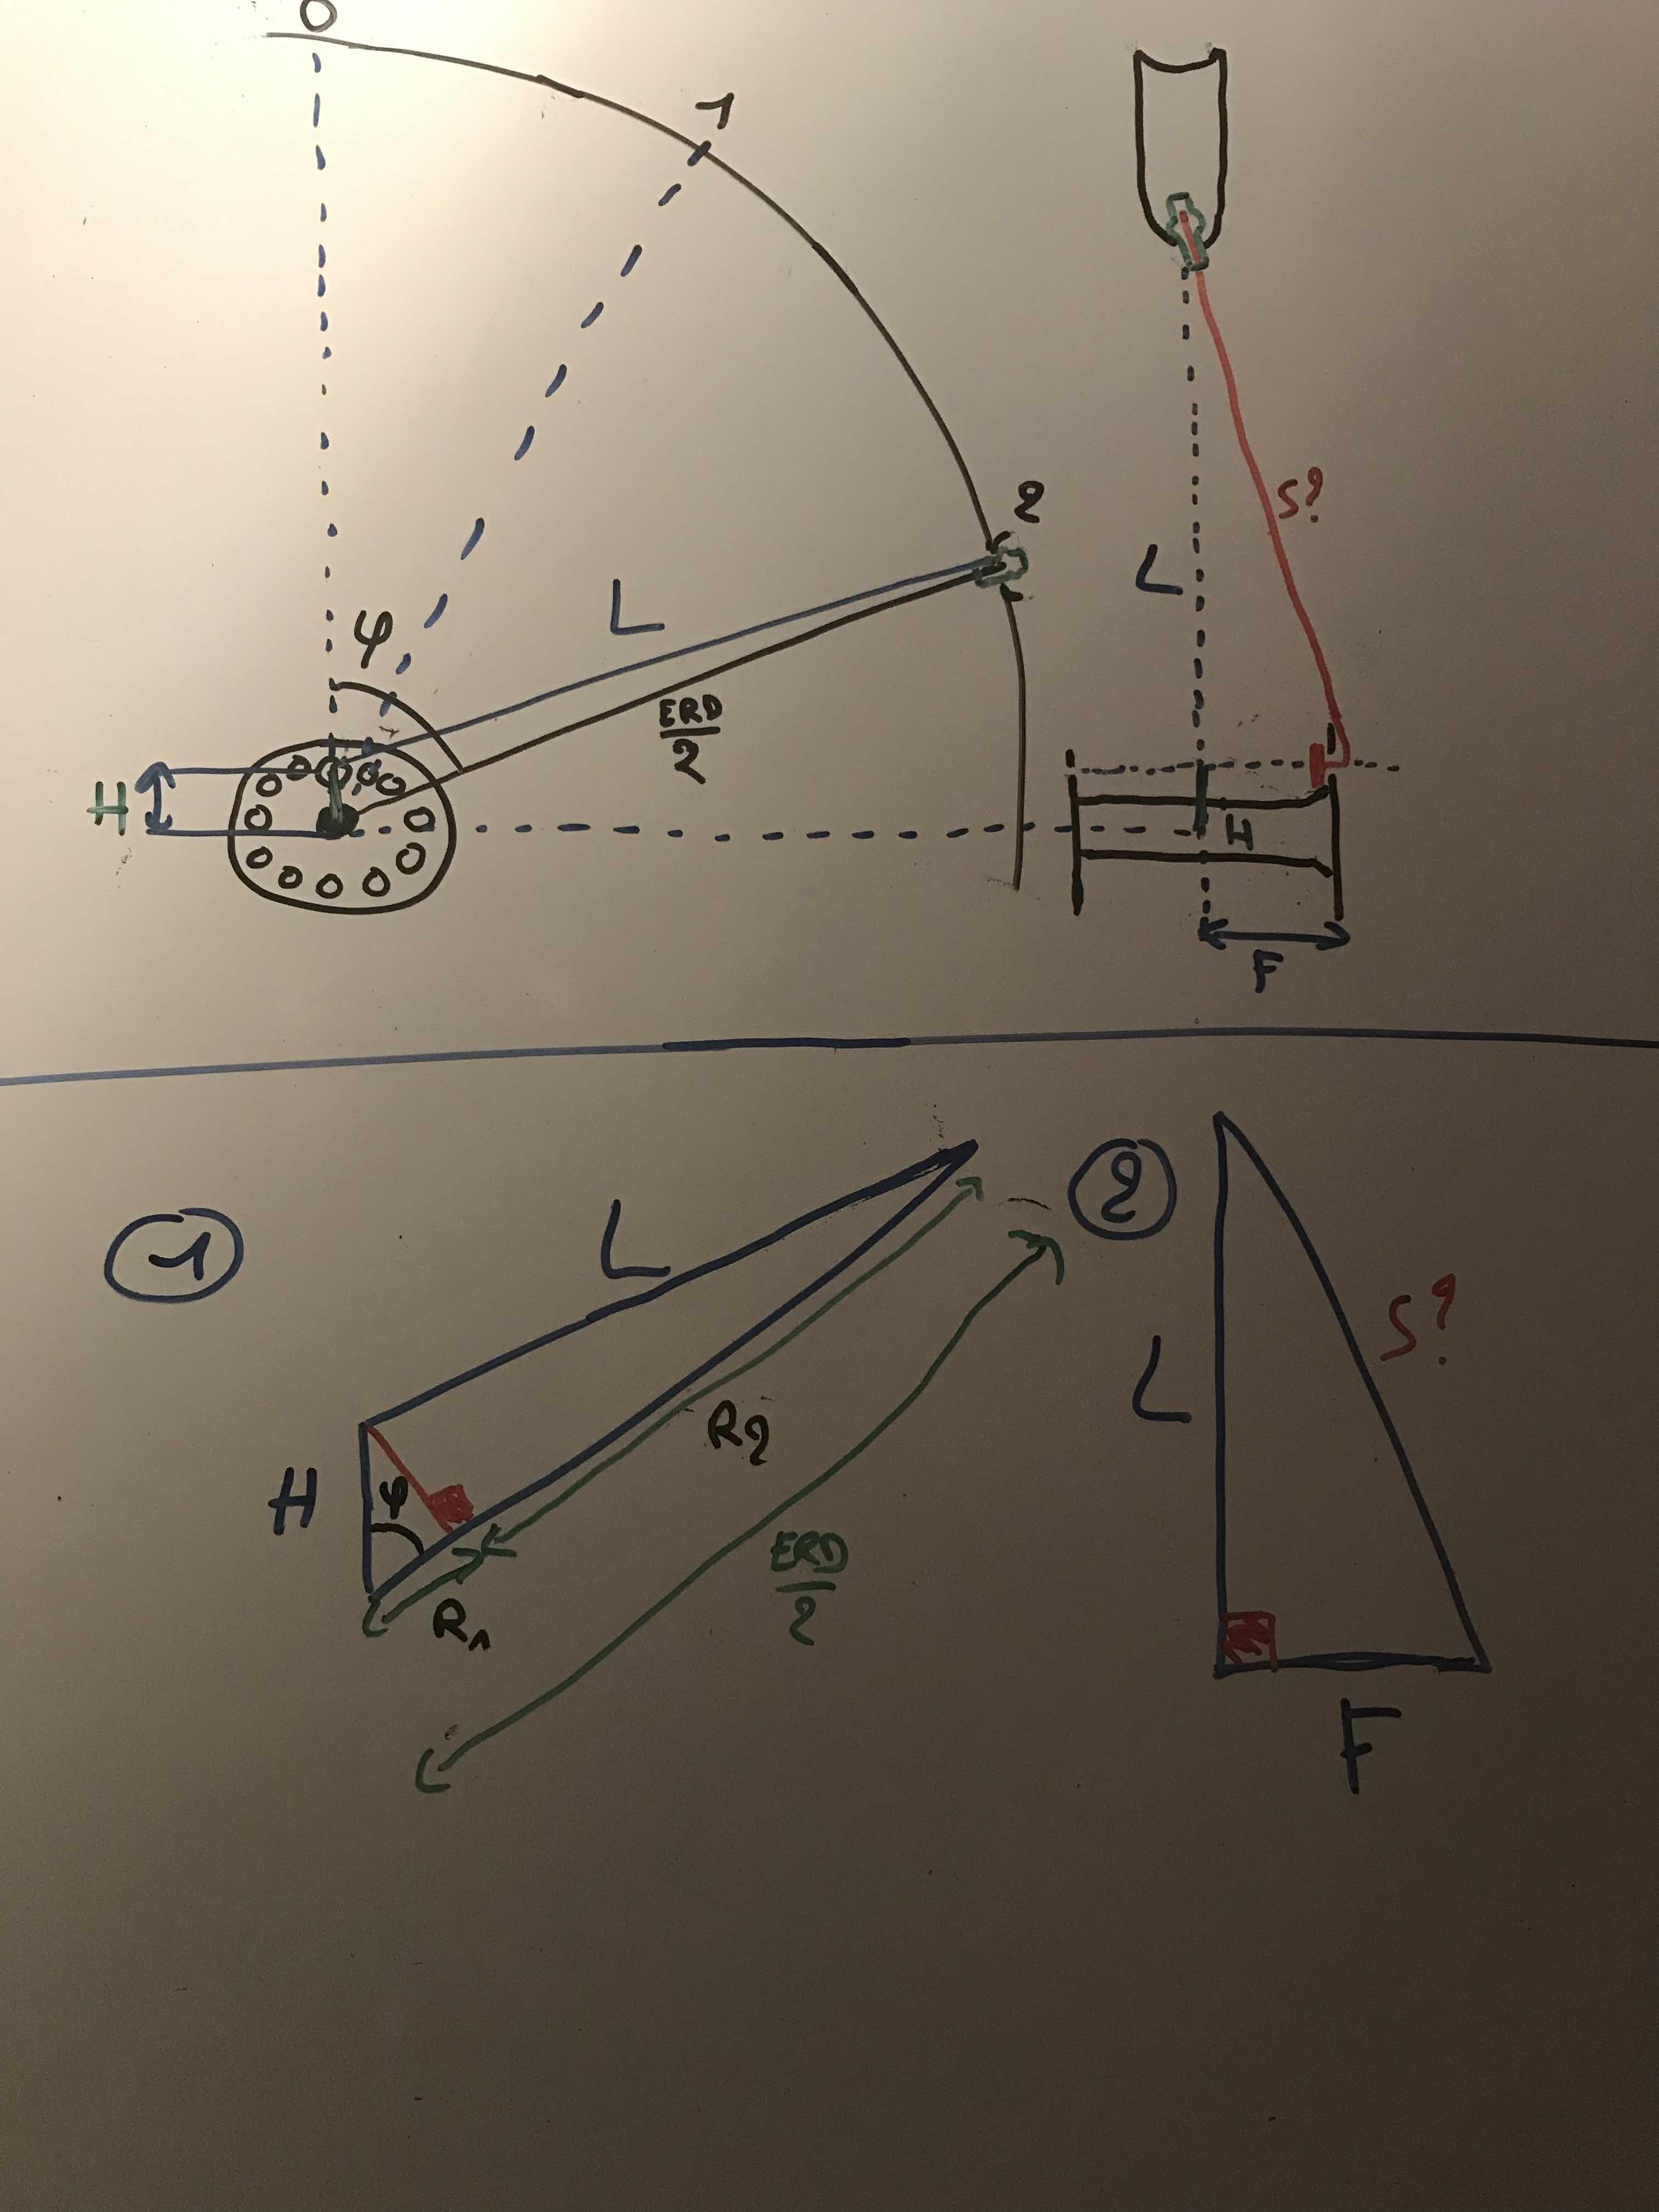 0
1
2
φ
L
ERD
2
H
S?
L
H
F
1
L
H
φ
R1
R2
ERD
2
2
L
S?
F